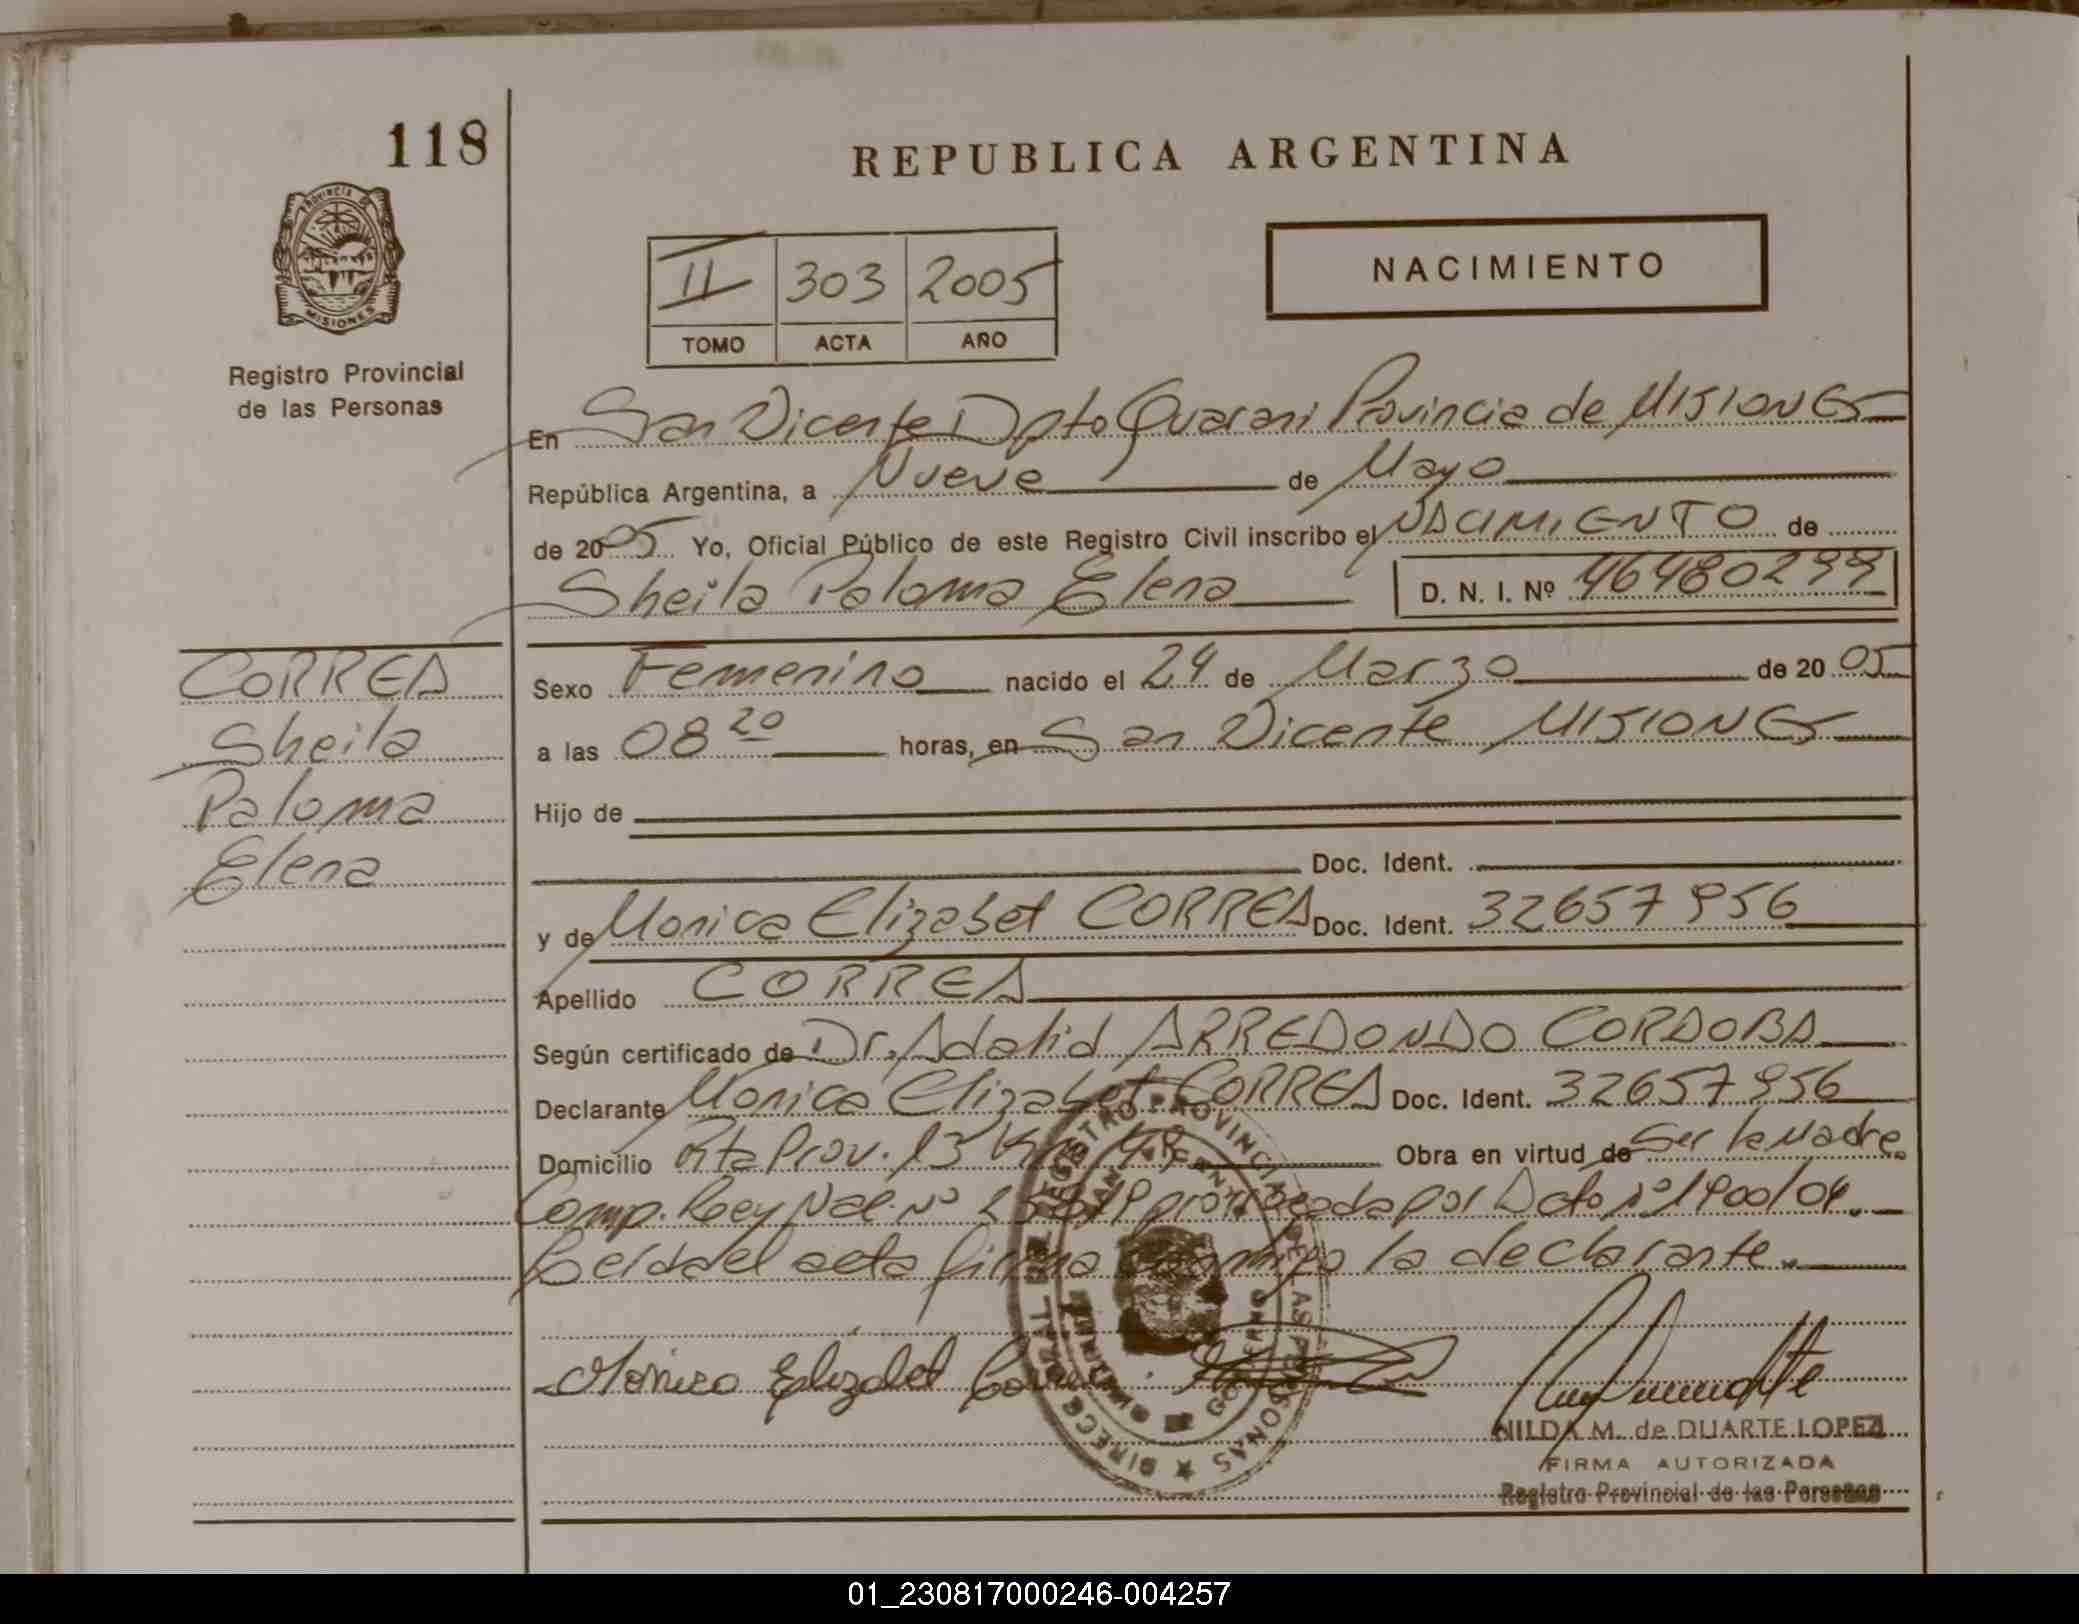 118
REPUBLICA ARGENTINA
PROVINCIA DE
MISIONES
Registro Provincial
de las Personas
II 303 2005
TOMO ACTA AÑO
NACIMIENTO
En San Vicente Dpto Guarani Provincia de MISIONES
República Argentina, a Nueve de Mayo
de 2005 Yo, Oficial Público de este Registro Civil inscribo el NACIMIENTO de
Sheila Paloma Elena D. N. I. Nº
CORREA
Sheila
Paloma
Elena
Sexo Femenino nacido el 24 de Marzo de 2005
a las 08 20 horas, en San Vicente MISIONES
Hijo de
Doc. Ident.
y de Monica Elizabet CORREA Doc. Ident. 32657956
Apellido CORREA
Según certificado de Dr. Adalid ARREDONDO CORDOBA
Declarante Monica Elizabet CORREA Doc. Ident. 32657956
Domicilio Rta Prov. 13 Obra en virtud de Ser la Madre.
Comp. Ley Nac. Nº prorrogada por Dcto Nº 1900/04.
Leida el acta firma conmigo la declarante.
Monica Elizabet Correa
DIRECC. GRAL. DEL REGISTRO PROVINCIAL DE LAS PERSONAS
SAN VICENTE
NILDA M. de DUARTE LOPEZ
FIRMA AUTORIZADA
Registro Provincial de las Personas
01_230817000246-004257